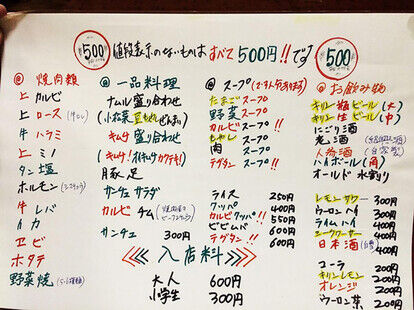 500
値段表示のないものは すべて500円!!です
500
◎ 焼肉類
上 カルビ
上 ロース
牛 ハラミ
上 ミノ
タン塩
ホルモン
牛 レバ
イカ
エビ
ホタテ
野菜焼
◎ 一品料理
ナムル盛り合わせ
(小松菜 豆もやし ぜんまい)
キムチ盛り合わせ
(キムチ! オイキムチ カクテキ!)
豚足
サンチュ サラダ
カルビ チム
サンチュ 300円
◎ スープ
たまごスープ
野菜スープ
カルビスープ!!
わかめスープ
肉スープ
テグタンスープ!!
ライス 250円
クッパ 400円
カルビクッパ!! 550円
ビビムバ 600円
テグタン!! 600円
◎ お飲み物
キリン 瓶ビール(大)
キリン 生ビール(中)
にごり酒
老酒
人参酒
ハイボール(角)
オールド 水割り
レモンサワー 300円
ウーロンハイ 300円
ライムハイ 300円
シークワーサー 400円
日本酒 400円
コーラ 200円
キリンレモン 200円
オレンジ 200円
ウーロン茶 200円
<<< 入店料 >>>
大人 600円
小学生 300円